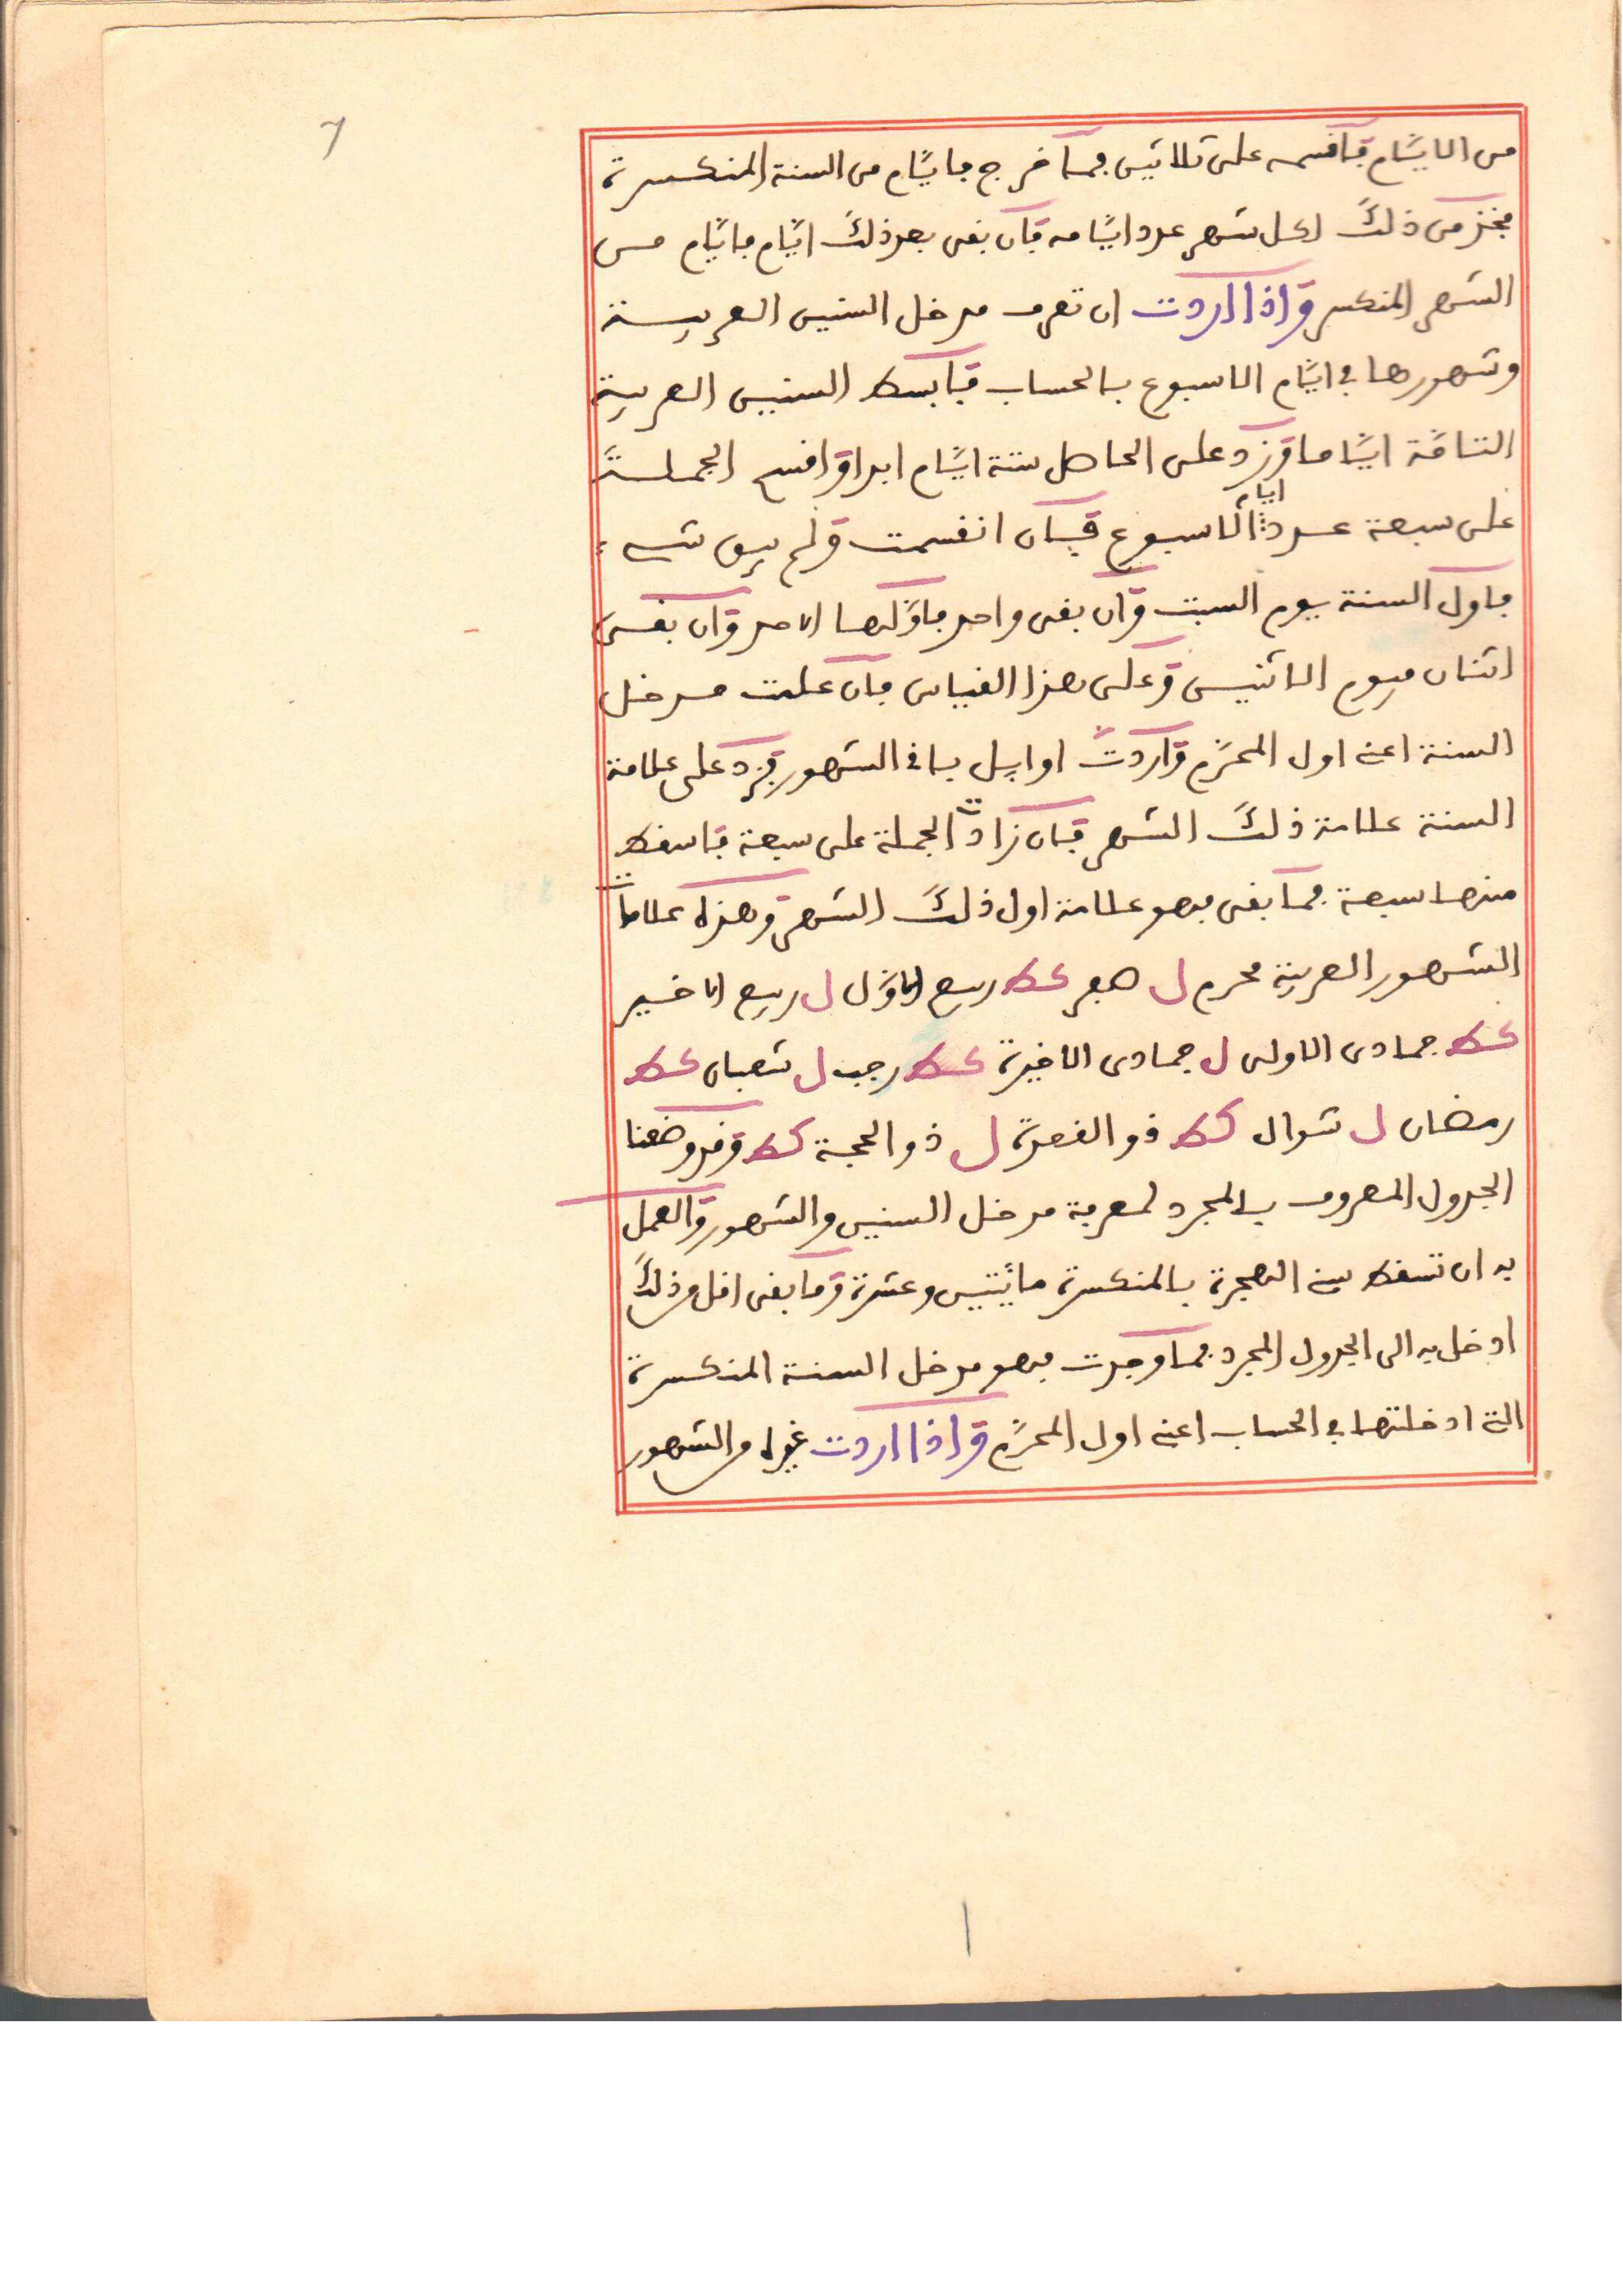 7
من الايام فاقسمه على ثلاثين فما خرج فايام من السنة المنكسرة
فخذ من ذلك لكل شهر عدد ايامه فان بقى بعد ذلك ايام فايام من
الشهر المنكسر واذا اردت ان تعرف مدخل السنين العربية
وشهورها في ايام الاسبوع بالحساب فابسط السنين العربية
التامة اياما وزد على الحاصل ستة ايام ابدا واقسم الجملة
على سبعة عدد ايام الاسبوع فان انقسمت ولم يبق شىء
فاول السنة يوم السبت وان بقى واحد فاولها الاحد وان بقى
اثنان فيوم الاثنين وعلى هذا القياس فان علمت مدخل
السنة اعنى اول المحرم واردت اوايل باقى الشهور فزد على علامة
السنة علامة ذلك الشهر فان زادت الجملة على سبعة فاسقط
منها سبعة فما بقى فهو علامة اول ذلك الشهر وهذه علامات
الشهور العربية محرم ل صفر كط ربيع الاول ل ربيع الاخير
كط جمادى الاولى ل جمادى الاخيرة كط رجب ل شعبان كط
رمضان ل شوال كط ذو القعدة ل ذو الحجة كط وقد وضعنا
الجدول المعروف بالمجرد لمعرفة مدخل السنين والشهور والعمل
به ان تسقط سنى الهجرة بالمنكسرة مائتين وعشرة وما بقى اقل من ذلك
ادخل به الى الجدول المجرد فما وجدت فهو مدخل السنة المنكسرة
التى ادخلتها في الحساب اعنى اول المحرم واذا اردت غيره من الشهور